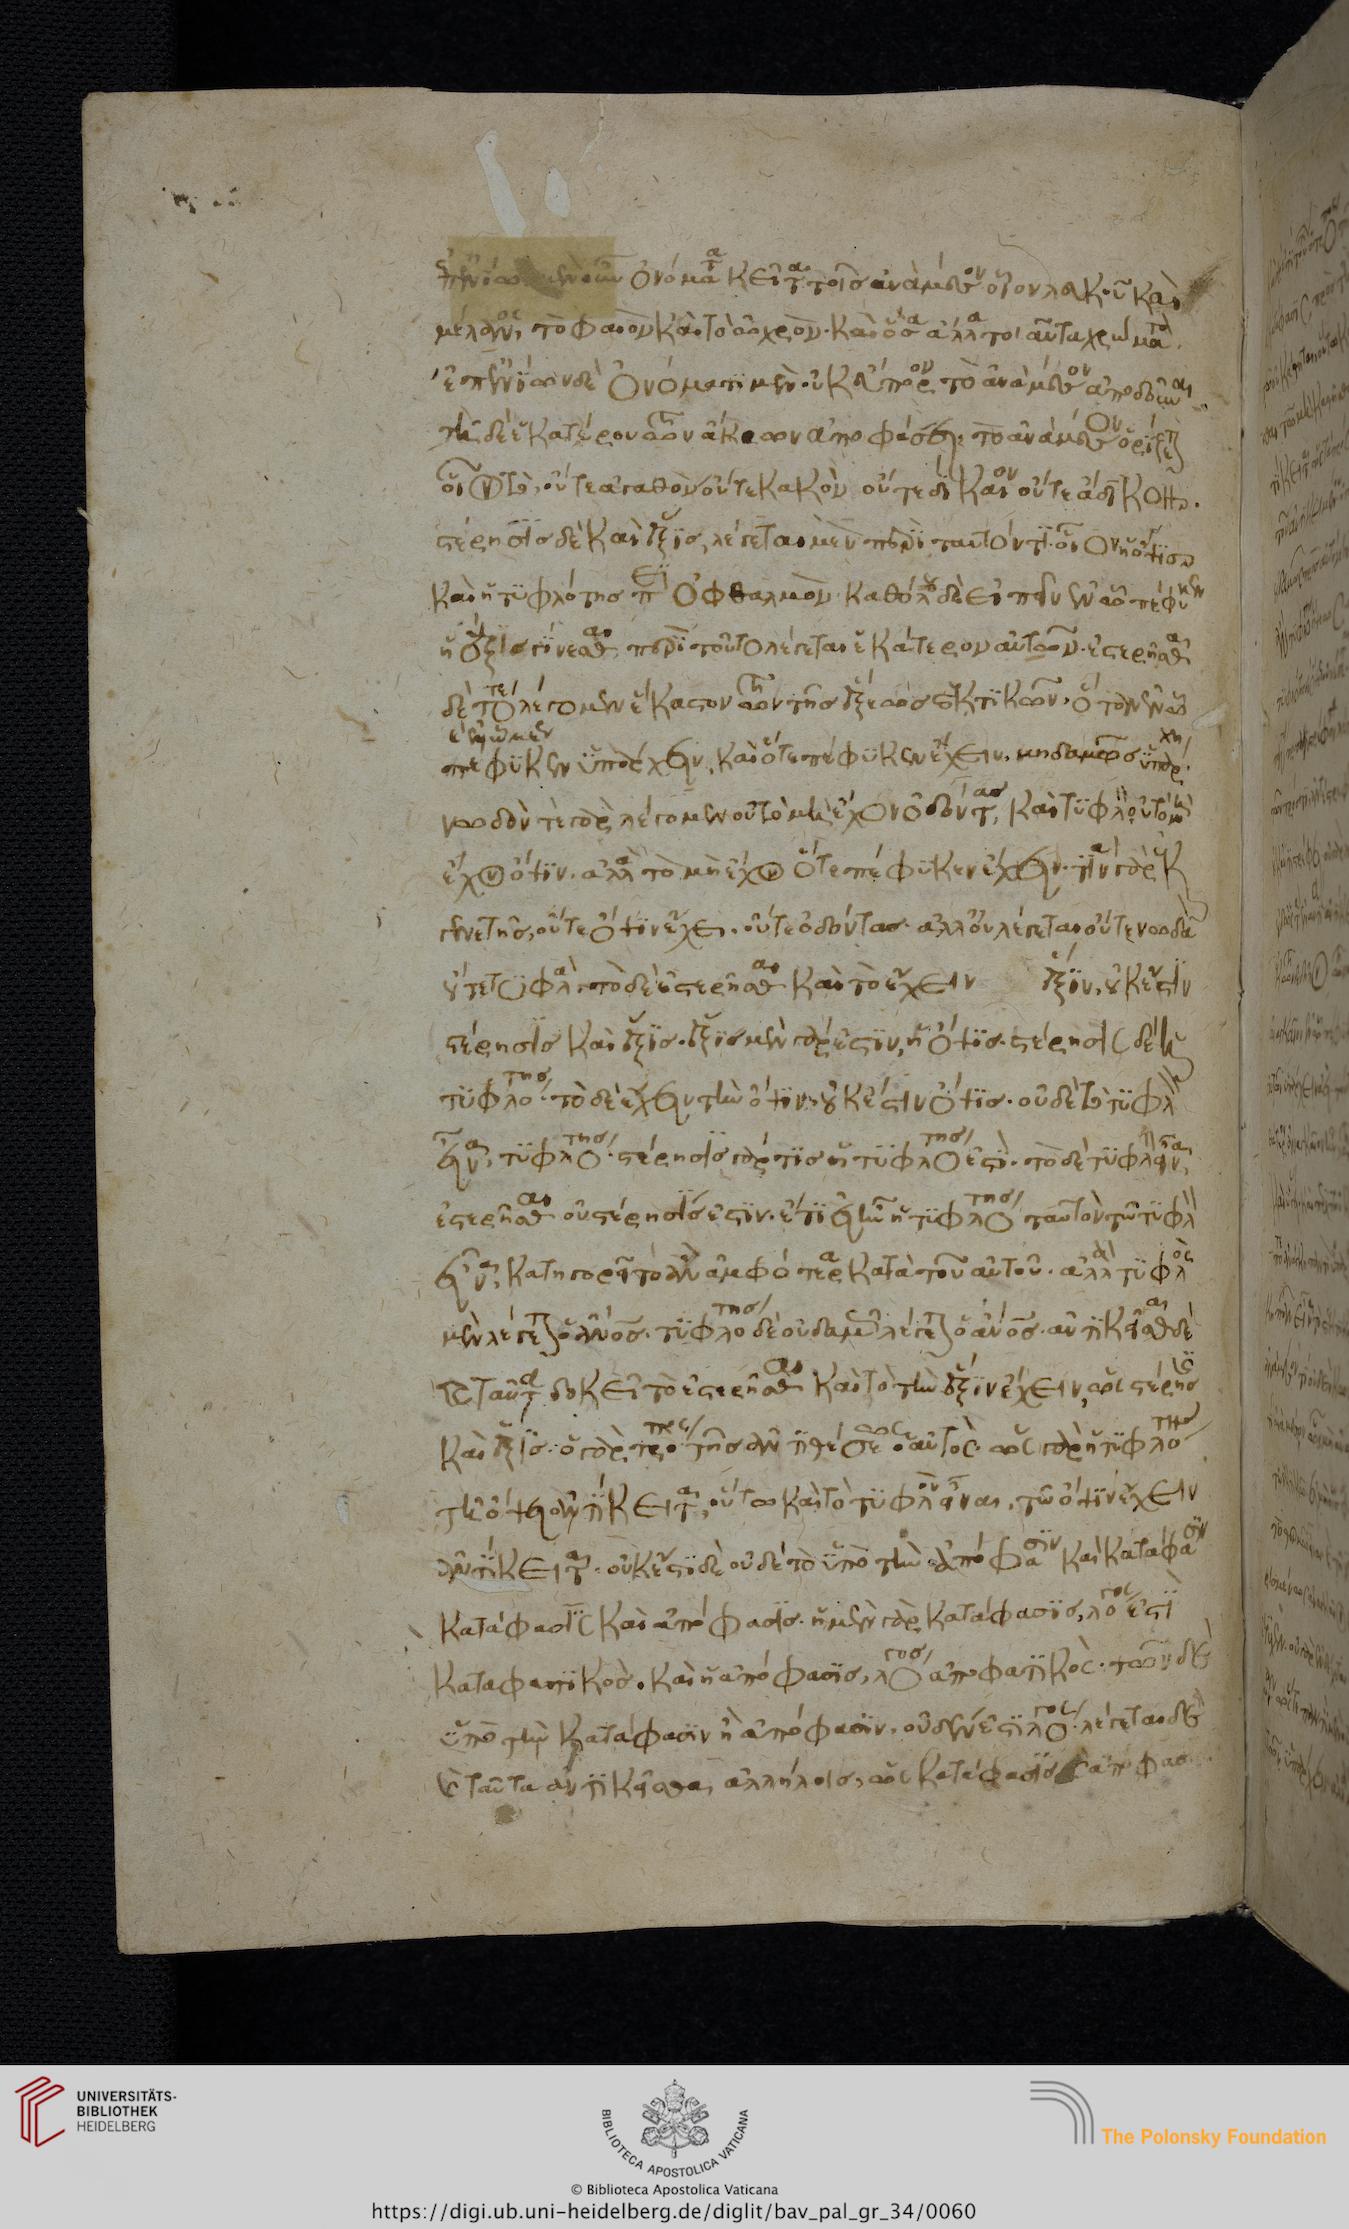 ἐπ' ἐνίων μὲν οὖν ὀνόματα κεῖται τοῖς ἀνάμεσον οἷον λευκοῦ καὶ
μέλανος, τὸ φαιὸν καὶ τὸ ὠχρὸν καὶ ὅσα ἄλλα τοιαῦτα χρώματα.
ἐπ' ἐνίων δὲ ὀνόματι μὲν οὐκ εὔπορον τὸ ἀνάμεσον ἀποδοῦναι
τῇ δὲ ἑκατέρου τῶν ἄκρων ἀποφάσει τὸ ἀνάμεσον ὁρίζεται
οἷον τὸ οὔτε ἀγαθὸν οὔτε κακὸν οὔτε δίκαιον οὔτε ἄδικον.
στέρησις δὲ καὶ ἕξις, λέγεται μὲν περὶ ταυτόν τι οἷον ἡ ὄψις
καὶ ἡ τυφλότης ἐπὶ ὀφθαλμὸν καθόλου δὲ εἰπεῖν ἐν ᾧ πέφυκεν
ἡ ἕξις γίνεσθαι περὶ τοῦτο λέγεται ἑκάτερον αὐτῶν. ἐστερῆσθαι
δὲ τότε λέγομεν ἕκαστον τῶν τῆς ἕξεως δεκτικῶν, ὅταν ἐν ᾧ
πέφυκεν ὑπάρχειν, καὶ ὅτε πέφυκεν ἔχειν, μηδαμῶς ὑπάρχῃ
νωδόν τε γὰρ λέγομεν οὐ τὸ μὴ ἔχον ὀδόντας, καὶ τυφλὸν οὐ τὸ μὴ
ἔχον ὄψιν. ἀλλὰ τὸ μὴ ἔχον ὅτε πέφυκεν ἔχειν. τινὰ γὰρ ἐκ
γενετῆς, οὔτε ὄψιν ἔχει. οὔτε ὀδόντας ἀλλ' οὐ λέγεται οὔτε νωδὰ
οὔτε τυφλά· τὸ δὲ ἐστερῆσθαι καὶ τὸ ἔχειν ἕξιν, οὐκ ἔστιν
στέρησις καὶ ἕξις. ἕξις μὲν γάρ ἐστιν, ἡ ὄψις. στέρησις δὲ ἡ
τυφλότης. τὸ δὲ ἔχειν τὴν ὄψιν οὐκ ἔστιν ὄψις. οὐδὲ τὸ τυφλὸν
εἶναι, τυφλότης. στέρησις γάρ τις ἡ τυφλότης ἐστί. τὸ δὲ τυφλὸν εἶναι,
ἐστερῆσθαι οὐ στέρησίς ἐστιν. ἔτι εἰ ἦν ἡ τυφλότης ταυτὸν τῷ τυφλὸν
εἶναι, κατηγορεῖτο ἂν ἀμφότερα κατὰ τοῦ αὐτοῦ. ἀλλὰ τυφλὸς
μὲν λέγεται ὁ ἄνθρωπος. τυφλότης δὲ οὐδαμῶς λέγεται ὁ ἄνθρωπος. ἀντικεῖσθαι δὲ
καὶ ταῦτα δοκεῖ τὸ ἐστερῆσθαι καὶ τὸ τὴν ἕξιν ἔχειν, ὡς στέρησις
καὶ ἕξις. ὁ γὰρ τρόπος τῆς ἀντιθέσεως ὁ αὐτός. ὡς γὰρ ἡ τυφλότης
τῇ ὄψει ἀντίκειται, οὕτω καὶ τὸ τυφλὸν εἶναι, τῷ ὄψιν ἔχειν
ἀντίκειται. οὐκ ἔστι δὲ οὐδὲ τὸ ὑπὸ τὴν ἀπόφασιν καὶ κατάφασιν
κατάφασις καὶ ἀπόφασις. ἡ μὲν γὰρ κατάφασις, λόγος ἐστὶ
καταφατικός. καὶ ἡ ἀπόφασις, λόγος ἀποφατικός. τῶν δὲ
ὑπὸ τὴν κατάφασιν ἢ ἀπόφασιν, οὐδέν ἐστι λόγος. λέγεται δὲ
καὶ ταῦτα ἀντικεῖσθαι ἀλλήλοις, ὡς κατάφασις καὶ ἀπόφασις
UNIVERSITÄTS-
BIBLIOTHEK
HEIDELBERG
BIBLIOTECA APOSTOLICA VATICANA
The Polonsky Foundation
© Biblioteca Apostolica Vaticana
https://digi.ub.uni-heidelberg.de/diglit/bav_pal_gr_34/0060